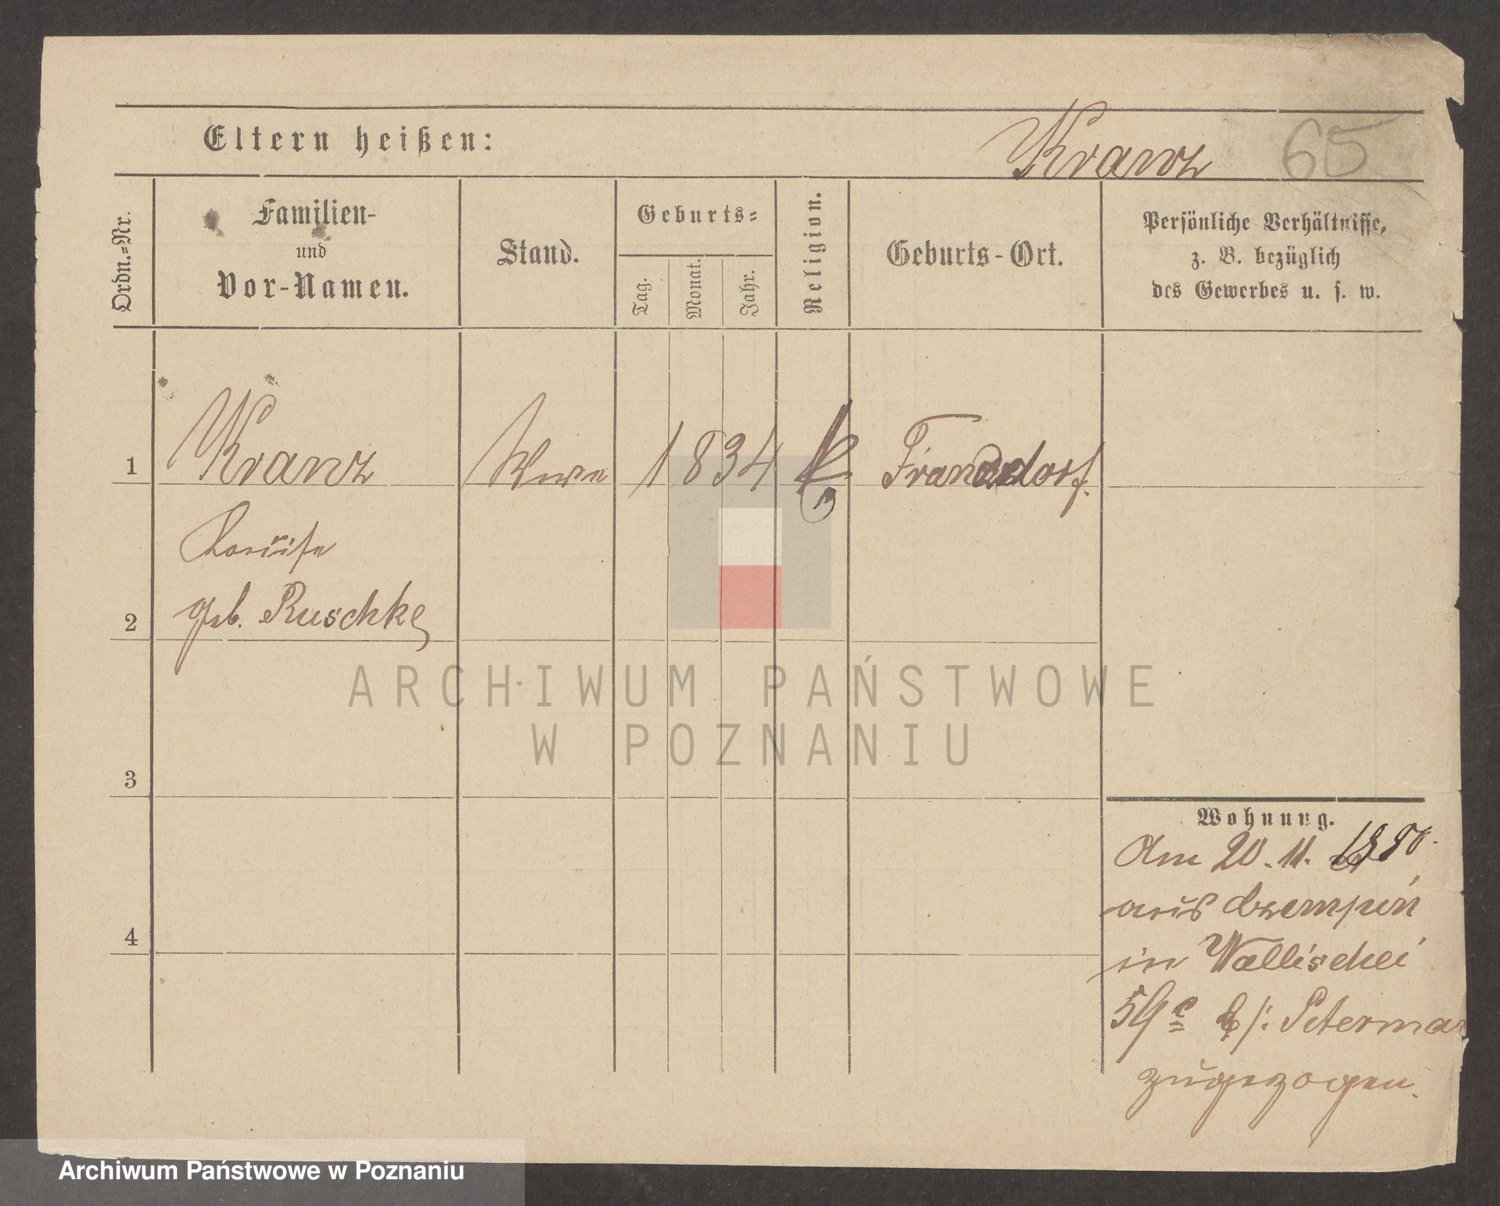 Eltern heißen:
Kranz 65
Ordn.-Nr.
Familien-
und
Vor-Namen.
Stand.
Geburts-
Tag.
Monat.
Jahr.
Religion.
Geburts-Ort.
Persönliche Verhältnisse,
z. B. bezüglich
des Gewerbes u. s. w.
1 Kranz Wwe 1834 k Franzdorf.
Louise
2 geb. Ruschke
3
4
Wohnung.
Am 20. 11. 1890.
aus Czempiń
in Wallischei
59c b/: Peterma
zugezogen.
ARCHIWUM PAŃSTWOWE
W POZNANIU
Archiwum Państwowe w Poznaniu